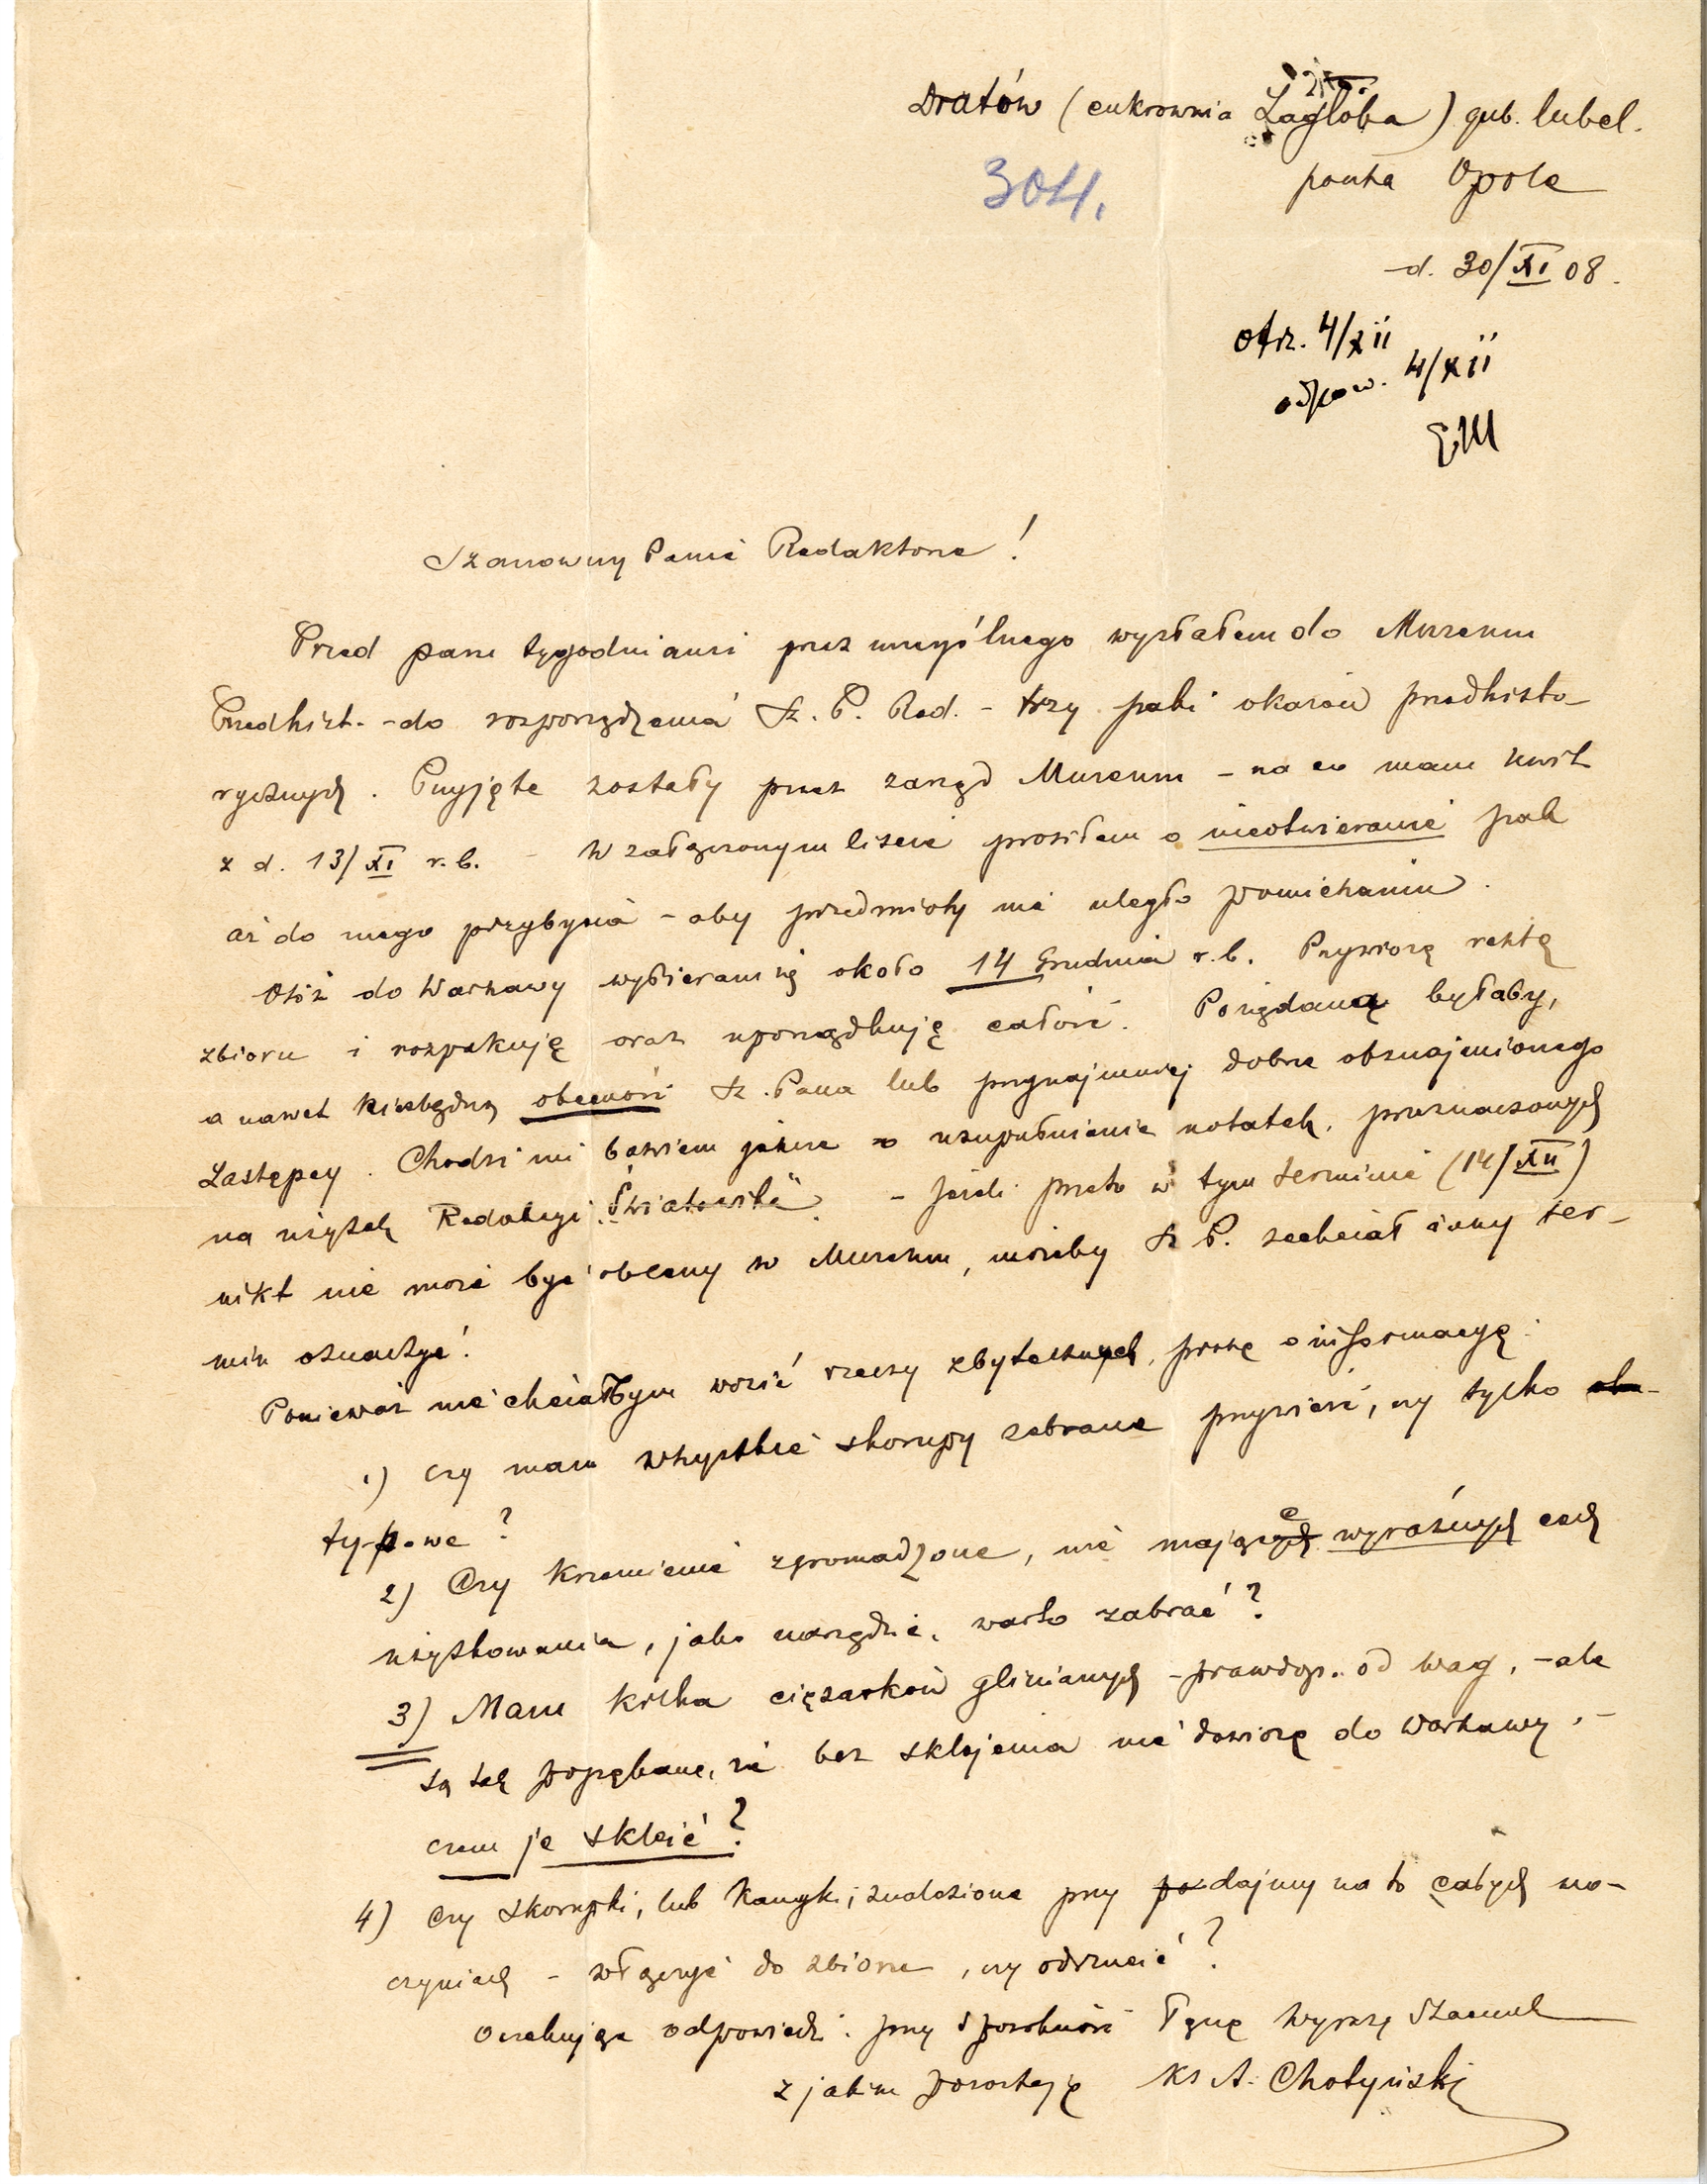 Dratów (cukrownia Zagłoba) gub. lubel.
304.
poczta Opole
d. 30/XI 08.
otrz. 4/xii
odpow. 4/xii
EM
Szanowny Panie Redaktorze!
Przed paru tygodniami przez umyślnego wysłałem do Muzeum
Przedhist. - do rozporządzenia Sz. P. Red. - trzy paki okazów przedhisto-
rycznych. Przyjęte zostały przez zarząd Muzeum - na co mam kwit
z d. 13/XI r.b. - W załączonym liście prosiłem o nieotwieranie pak
aż do mego przybycia - aby przedmioty nie uległo pomieszaniu.
Otóż do Warszawy wybieram się około 14 Grudnia r.b. Przywiozę resztę
zbioru i rozpakuję oraz uporządkuję całość. Pożądaną byłaby,
a nawet niezbędną obecność Sz. Pana lub przynajmniej dobrze obznajmionego
Zastępcy. Chodzi mi bowiem jeszcze o uzupełnienie notatek, przeznaczonych
na użytek Redakcyi „Światowita". - Jeżeli przeto w tym terminie (14/XII)
nikt nie może być obecny w Muzeum, możeby Sz P. zechciał inny ter-
min oznaczyć!
Ponieważ nie chciałbym wozić rzeczy zbytecznych, proszę o informacyę:
1) czy mam wszystkie skorupy zebrane przywieść, czy tylko
typowe?
2) Czy krzemienie zgromadzone, nie mające wyraźnych cech
użytkowania, jako narzędzie, warto zabrać?
3) Mam kilka ciężarków glinianych - prawdop. od wag, - ale
są tak popękane, że bez sklejenia nie dowiozę do Warszawy, -
czem je skleić?
4) czy skorupki, lub kamyki, znalezione przy po dajmy na to całych na-
czyniach - włączyć do zbioru, czy odrzucić?
Oczekując odpowiedzi, przy sposobności łączę wyrazy Szacunk
z jakim pozostaję Ks A. Chotyński